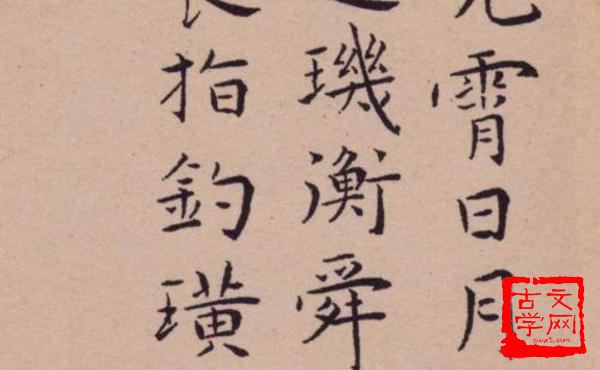 霄日月
璣衡舜
指釣璜
古文
学网